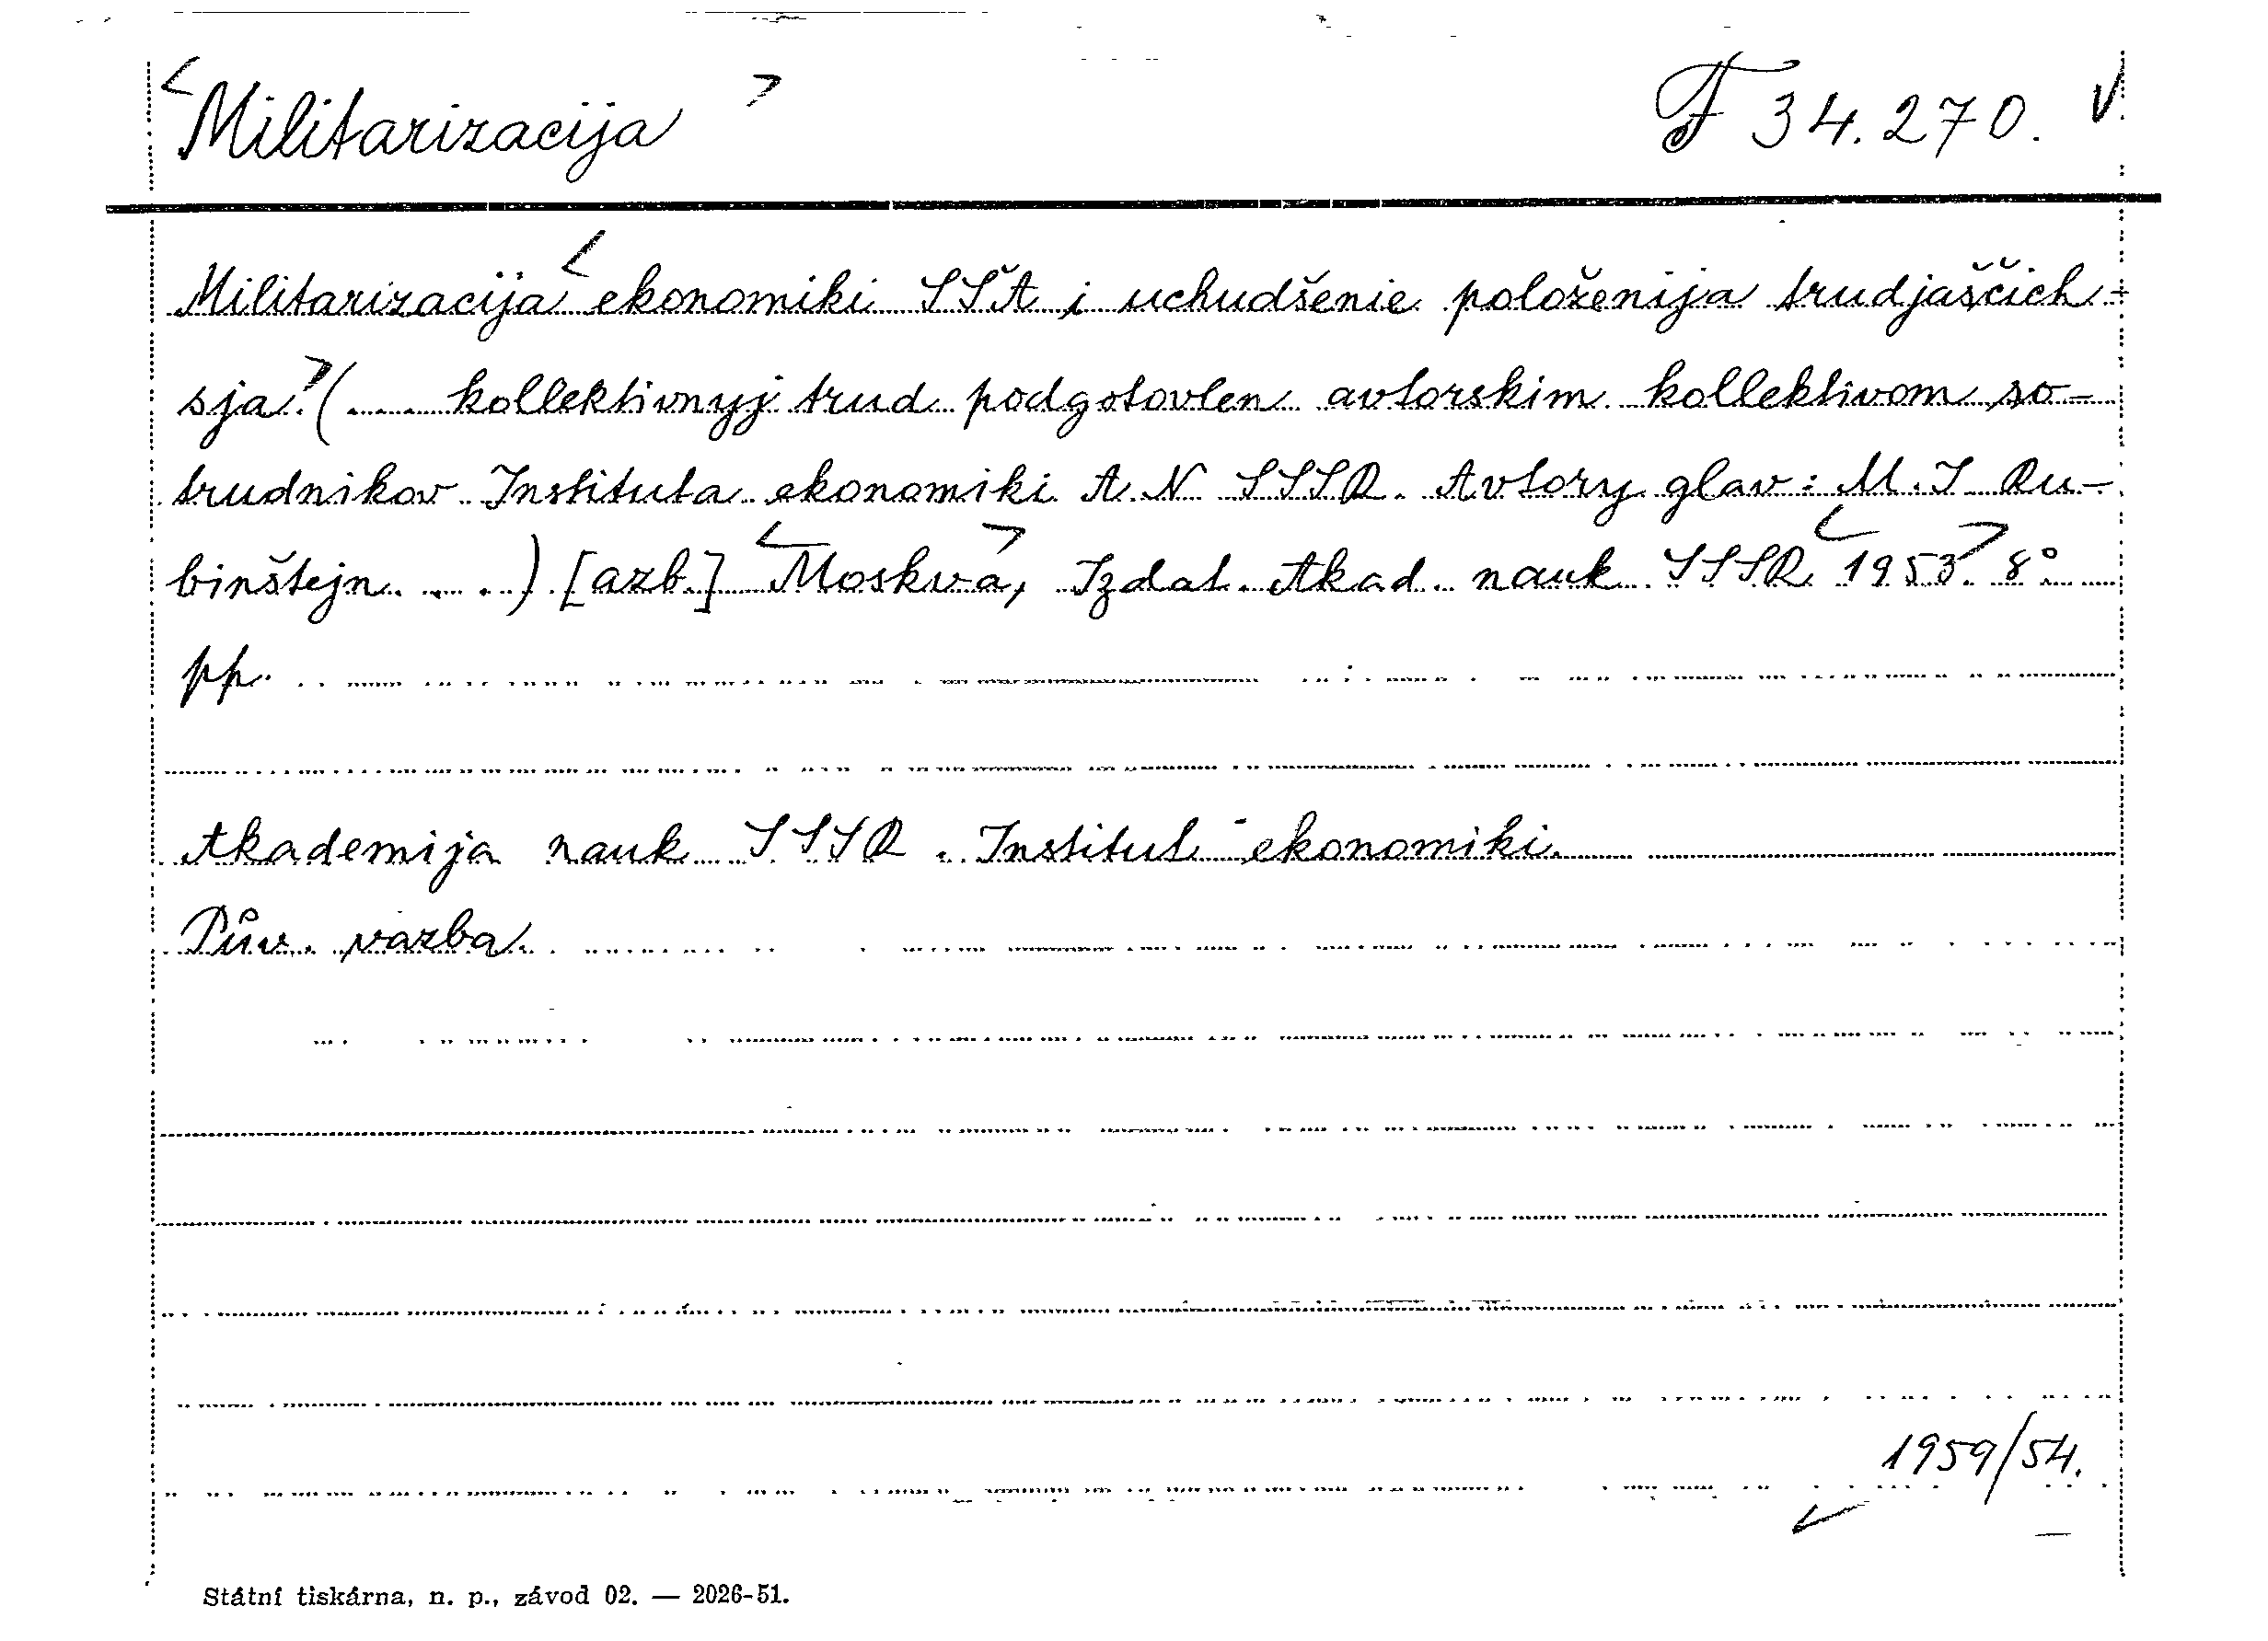 <Militarizacija> F 34.270. V
Militarizacija <ekonomiki SŠA i uchudšenie položenija trudjaščich-
sja.> (... kollektivnyj trud podgotovlen avtorskim kollektivom so-
trudnikov Instituta ekonomiki A N SSSR. Avtory glav: M. I Ru-
binštejn. . . .) [azb.] <Moskva>, Izdat. Akad. nauk SSSR <1953.> 8°
pp.
Akademija nauk SSSR. Institut ekonomiki.
Pův. vazba.
1959/54.
Státní tiskárna, n. p., závod 02. — 2026-51.